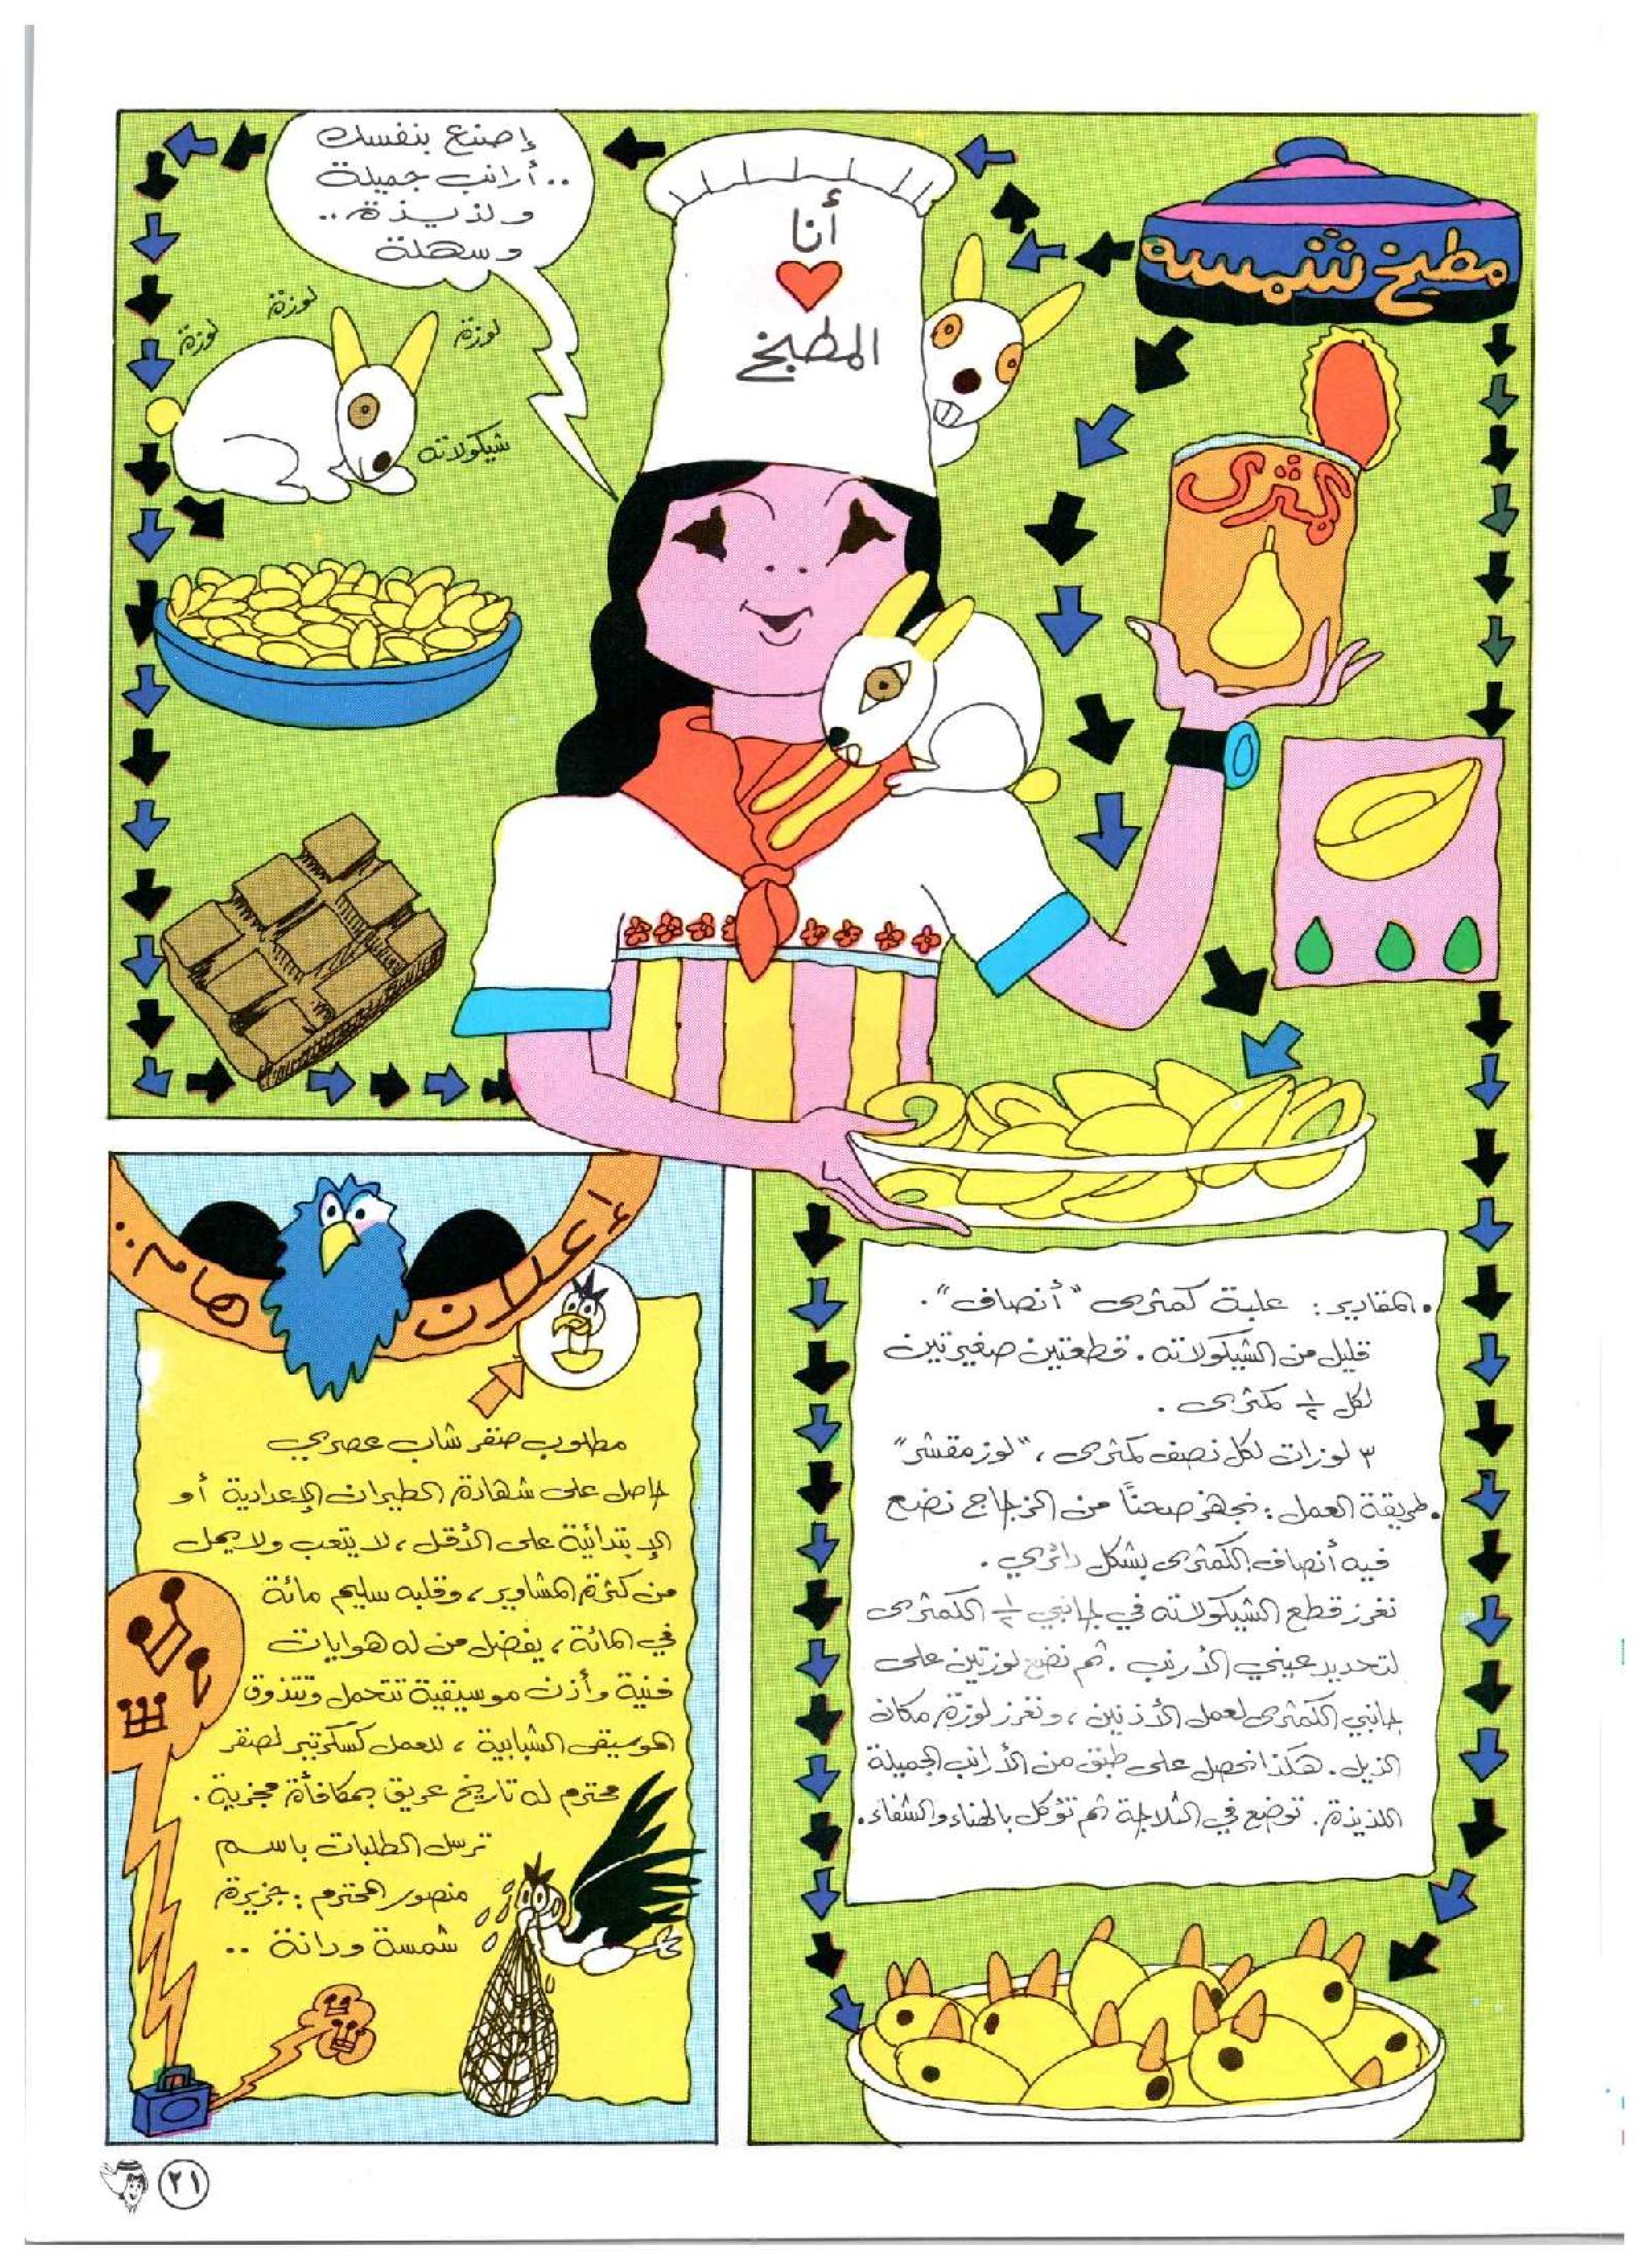 مطبخ شمسه
إصنع بنفسك
..أرانب جميلة
ولذيذة..
وسهلة
أنا
المطبخ
لوزة
لوزة
لوزة
شيكولاته
كمثرى
• المقادير : علبة كمثرى "أنصاف".
قليل من الشيكولاته . قطعتين صغيرتين
لكل ½ كمثرى .
٣ لوزات لكل نصف كمثرى ، "لوز مقشر"
• طريقة العمل : نجهز صحنًا من الزجاج نضع
فيه أنصاف الكمثرى بشكل دائري .
نغرز قطع الشيكولاته في جانبي ½ الكمثرى
لتحديد عيني الأرنب . ثم نضع لوزتين على
جانبي الكمثرى لعمل الأذنين ، ونغرز لوزة مكان
الذيل . هكذا نحصل على طبق من الأرانب الجميلة
اللذيذة . توضع في الثلاجة ثم تؤكل بالهناء والشفاء .
أعلان هام ..
مطلوب صقر شاب عصري
حاصل على شهادة الطيران الإعدادية أو
الإبتدائية على الأقل ، لا يتعب ولا يمل
من كثرة المشاوير ، وقلبه سليم مائة
في المائة ، يفضل من له هوايات
فنية وأذن موسيقية تتحمل وتتذوق
الموسيقى الشبابية ، للعمل كسكرتير لصقر
محترم له تاريخ عريق بمكافأة مجزية .
ترسل الطلبات باسم
منصور المحترم : جزيرة
شمسة ودانة ..
٢١